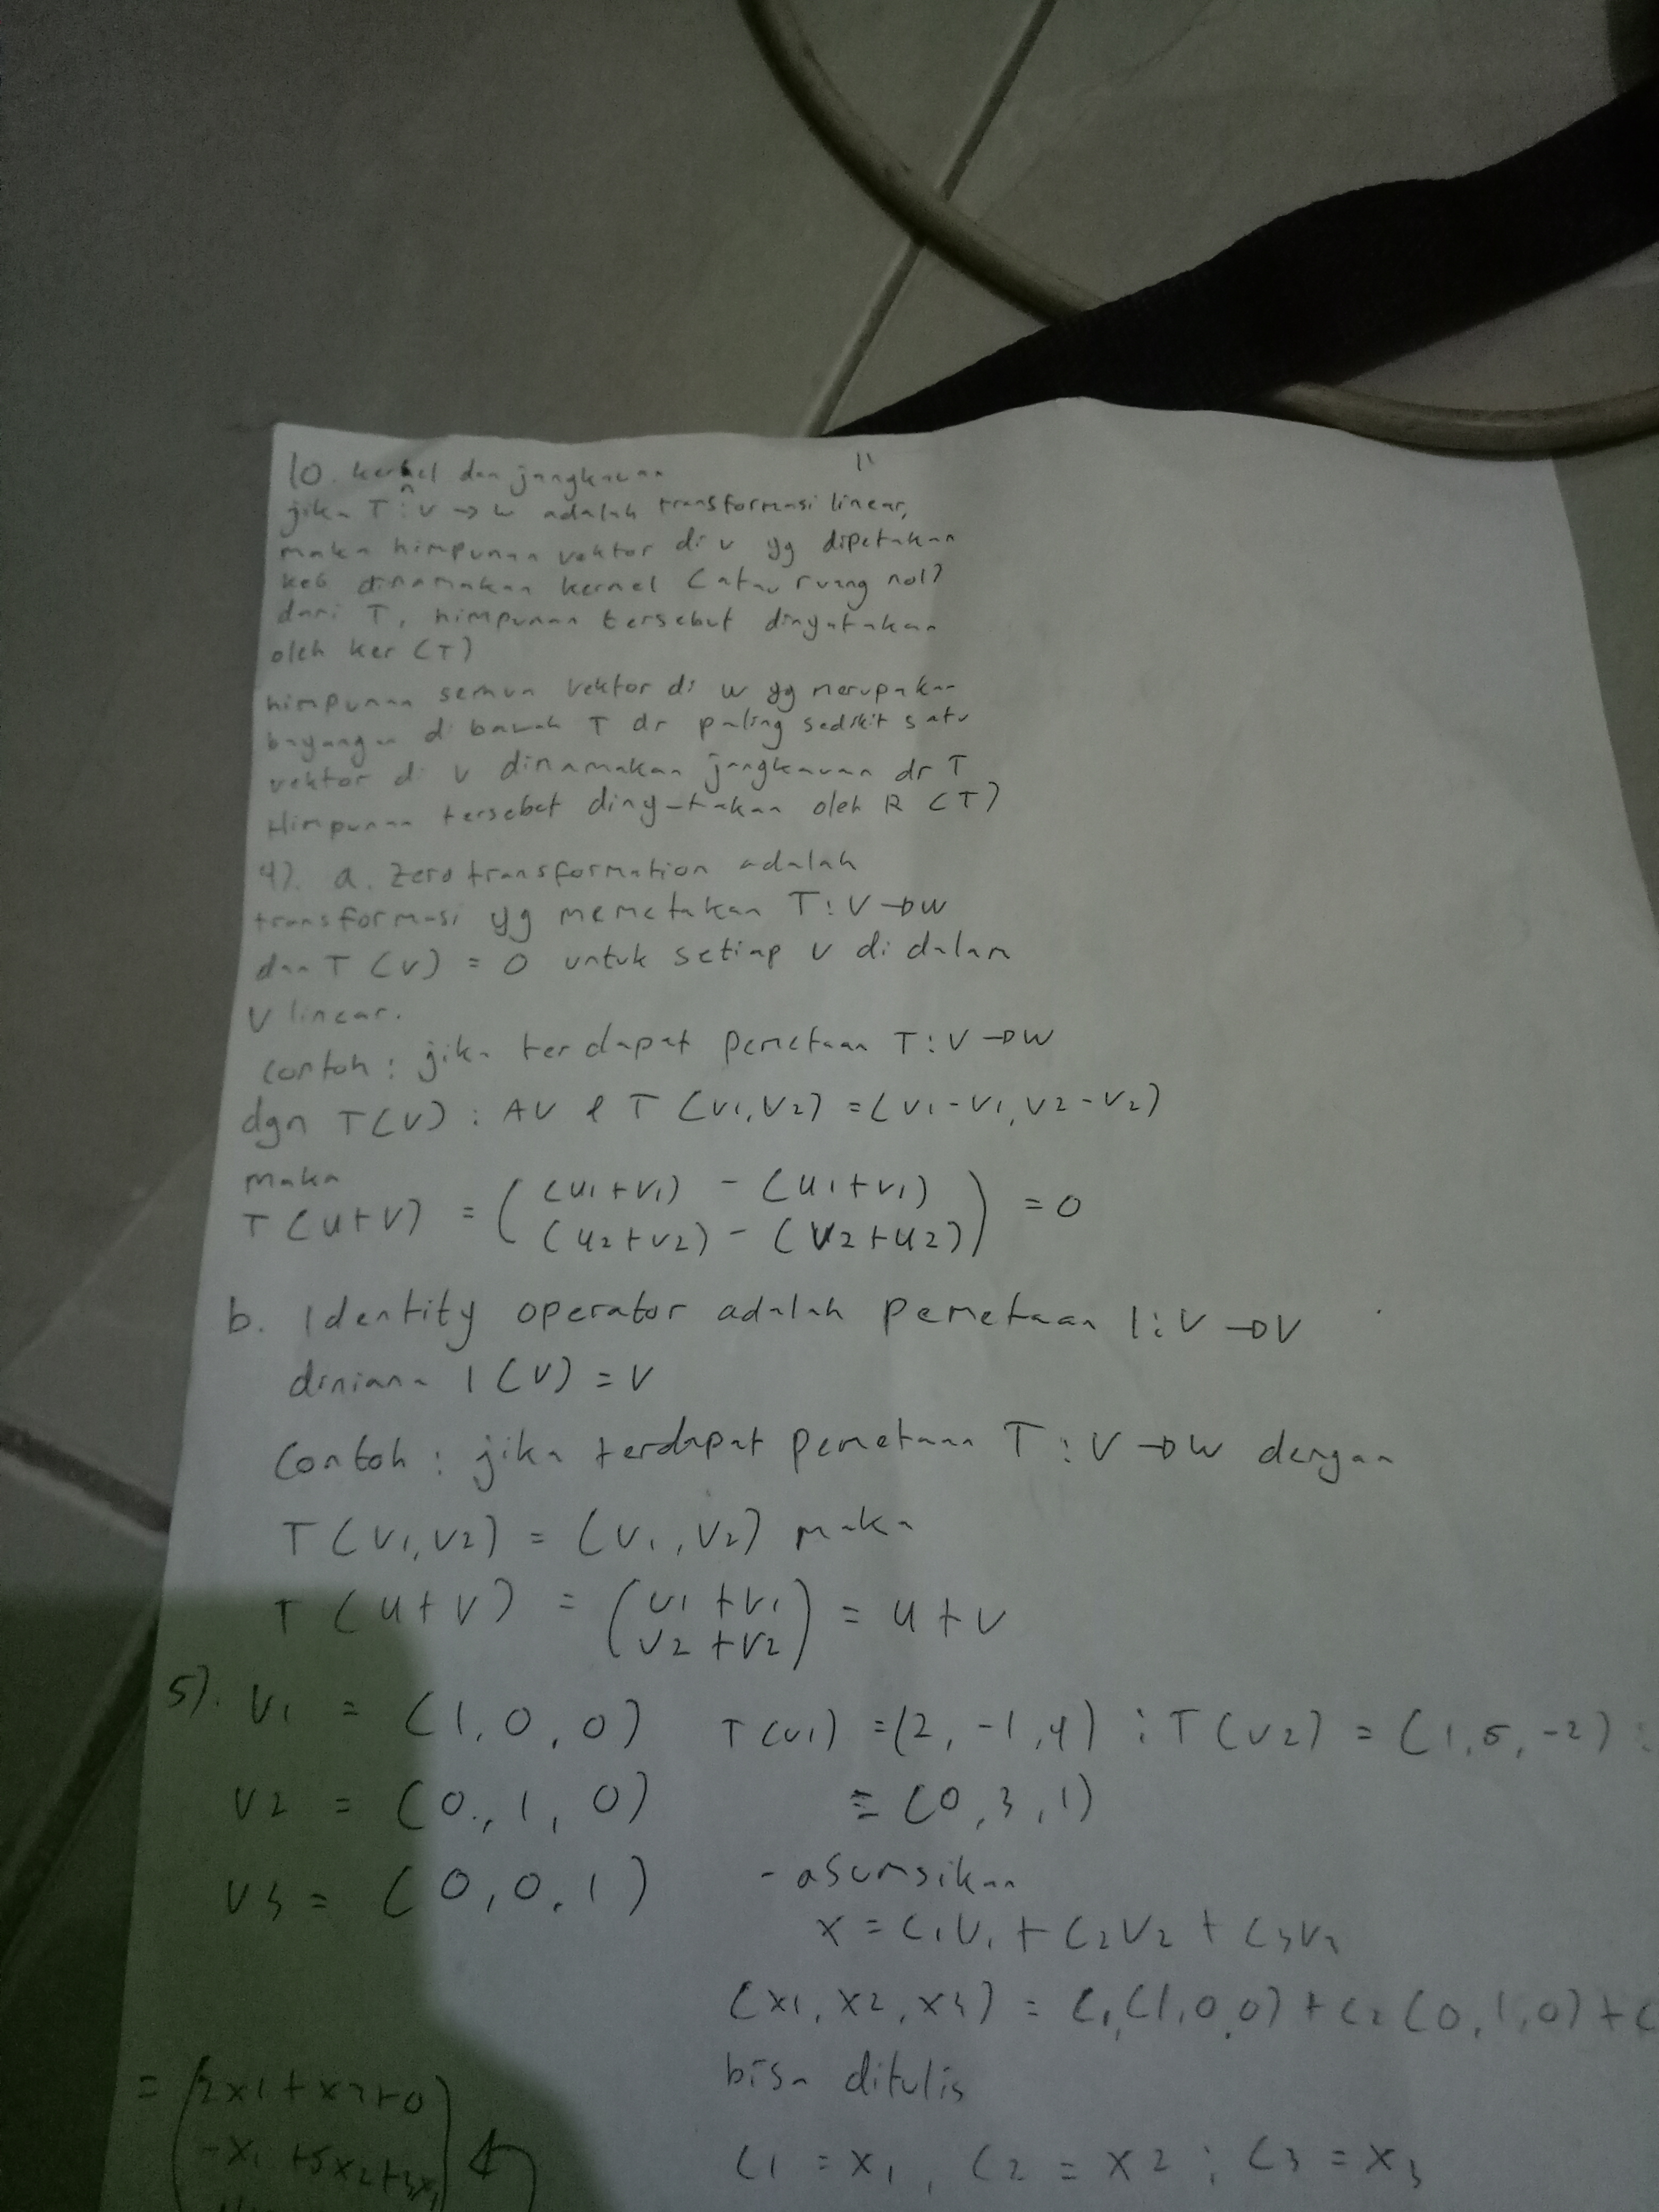 10. kernel dan jangkauan
11
jika T : V → W adalah transformasi linear,
maka himpunan vektor di V yg dipetakan
ke 0 dinamakan kernel (atau ruang nol)
dari T, himpunan tersebut dinyatakan
oleh ker (T)
himpunan semua vektor di W yg merupakan
bayangan di bawah T dr paling sedikit satu
vektor di V dinamakan jangkauan dr T
Himpunan tersebut dinyatakan oleh R (T)
4). a. Zero transformation adalah
transformasi yg memetakan T : V → W
dan T (V) = 0 untuk setiap V di dalam
V linear.
Contoh : jika terdapat pemetaan T : V → W
dgn T(V) : AV & T (V1, V2) = (V1 - V1, V2 - V2)
maka
T (U+V) = ( (U1 + V1) - (U1 + V1) ) = 0
( (U2 + V2) - (V2 + U2) )
b. Identity operator adalah pemetaan I : V → V
dimana I (V) = V
Contoh : jika terdapat pemetaan T : V → W dengan
T (V1, V2) = (V1, V2) maka
T (U + V) = ( U1 + V1 ) = U + V
( V2 + V2 )
5). V1 = (1, 0, 0) T (V1) = (2, -1, 4) ; T (V2) = (1, 5, -2) ;
V2 = (0, 1, 0) = (0, 3, 1)
V3 = (0, 0, 1) - asumsikan
x = C1V1 + C2V2 + C3V3
(x1, x2, x3) = C1 (1, 0, 0) + C2 (0, 1, 0) + C
bisa ditulis
C1 = x1, C2 = x2 ; C3 = x3
= ( 2x1 + x2 + 0 )
-x1 + 5x2 + 3x3